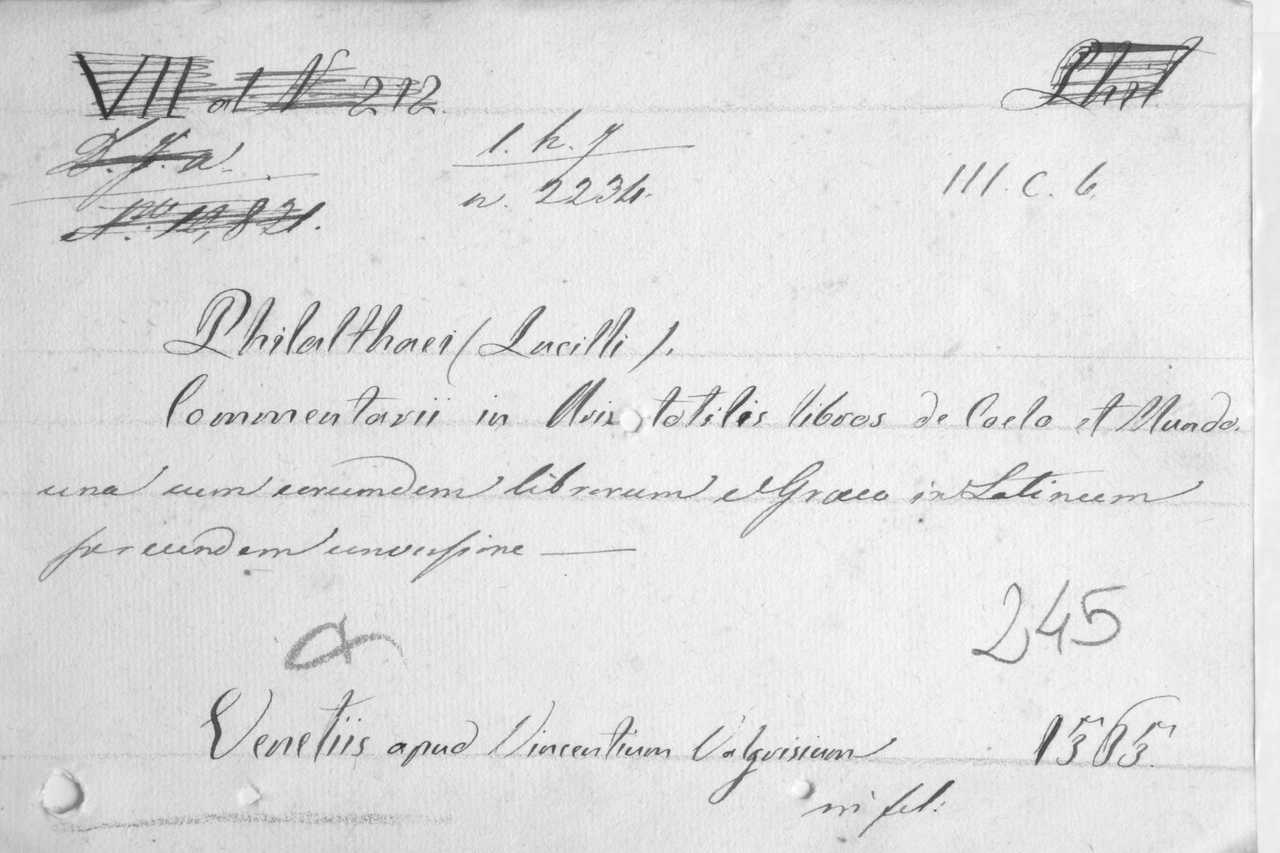 VII at N 212.
Phil
D. J. a.
1. h. 7
n. 2234.
III. c. 6.
Nro. 12,821.
Philalthaei (Lucilli).
Commentarii in Aristotelis libros de Coelo et Mundo.
una cum eorumdem librorum e Graeco in Latineum
per eundem conversione —
245
Venetiis apud Vincentium Valgrisium 1565.
in fol: